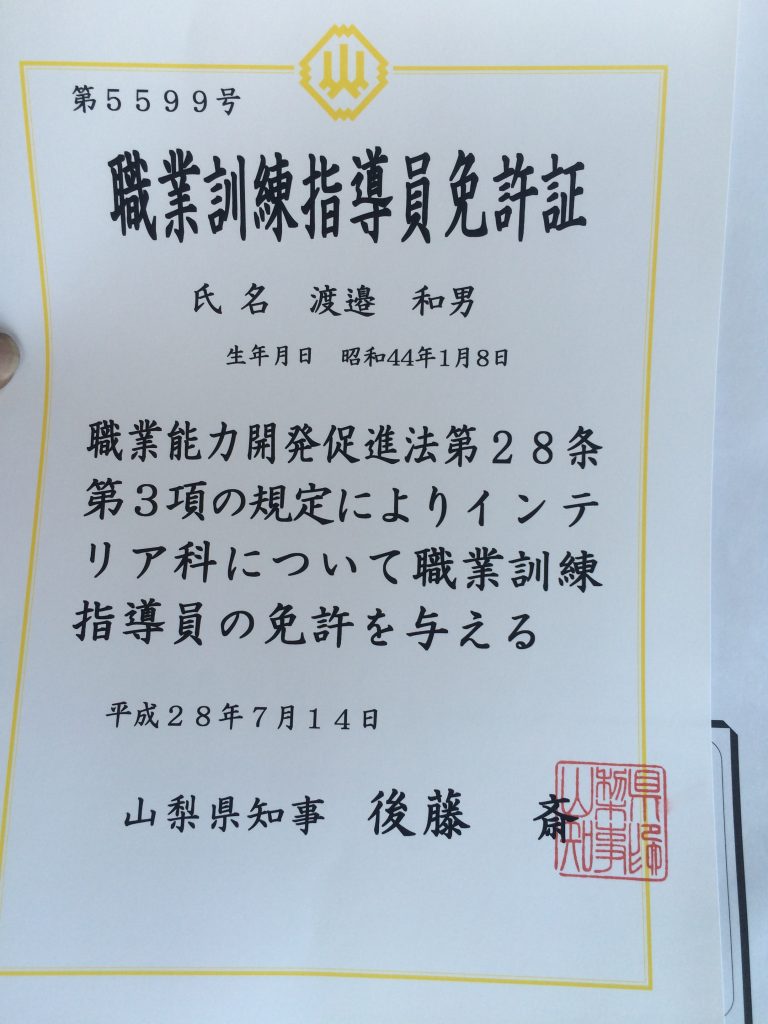 第5599号
職業訓練指導員免許証
氏名 渡邉 和男
生年月日 昭和44年1月8日
職業能力開発促進法第28条
第3項の規定によりインテ
リア科について職業訓練
指導員の免許を与える
平成28年7月14日
山梨県知事 後藤 斎